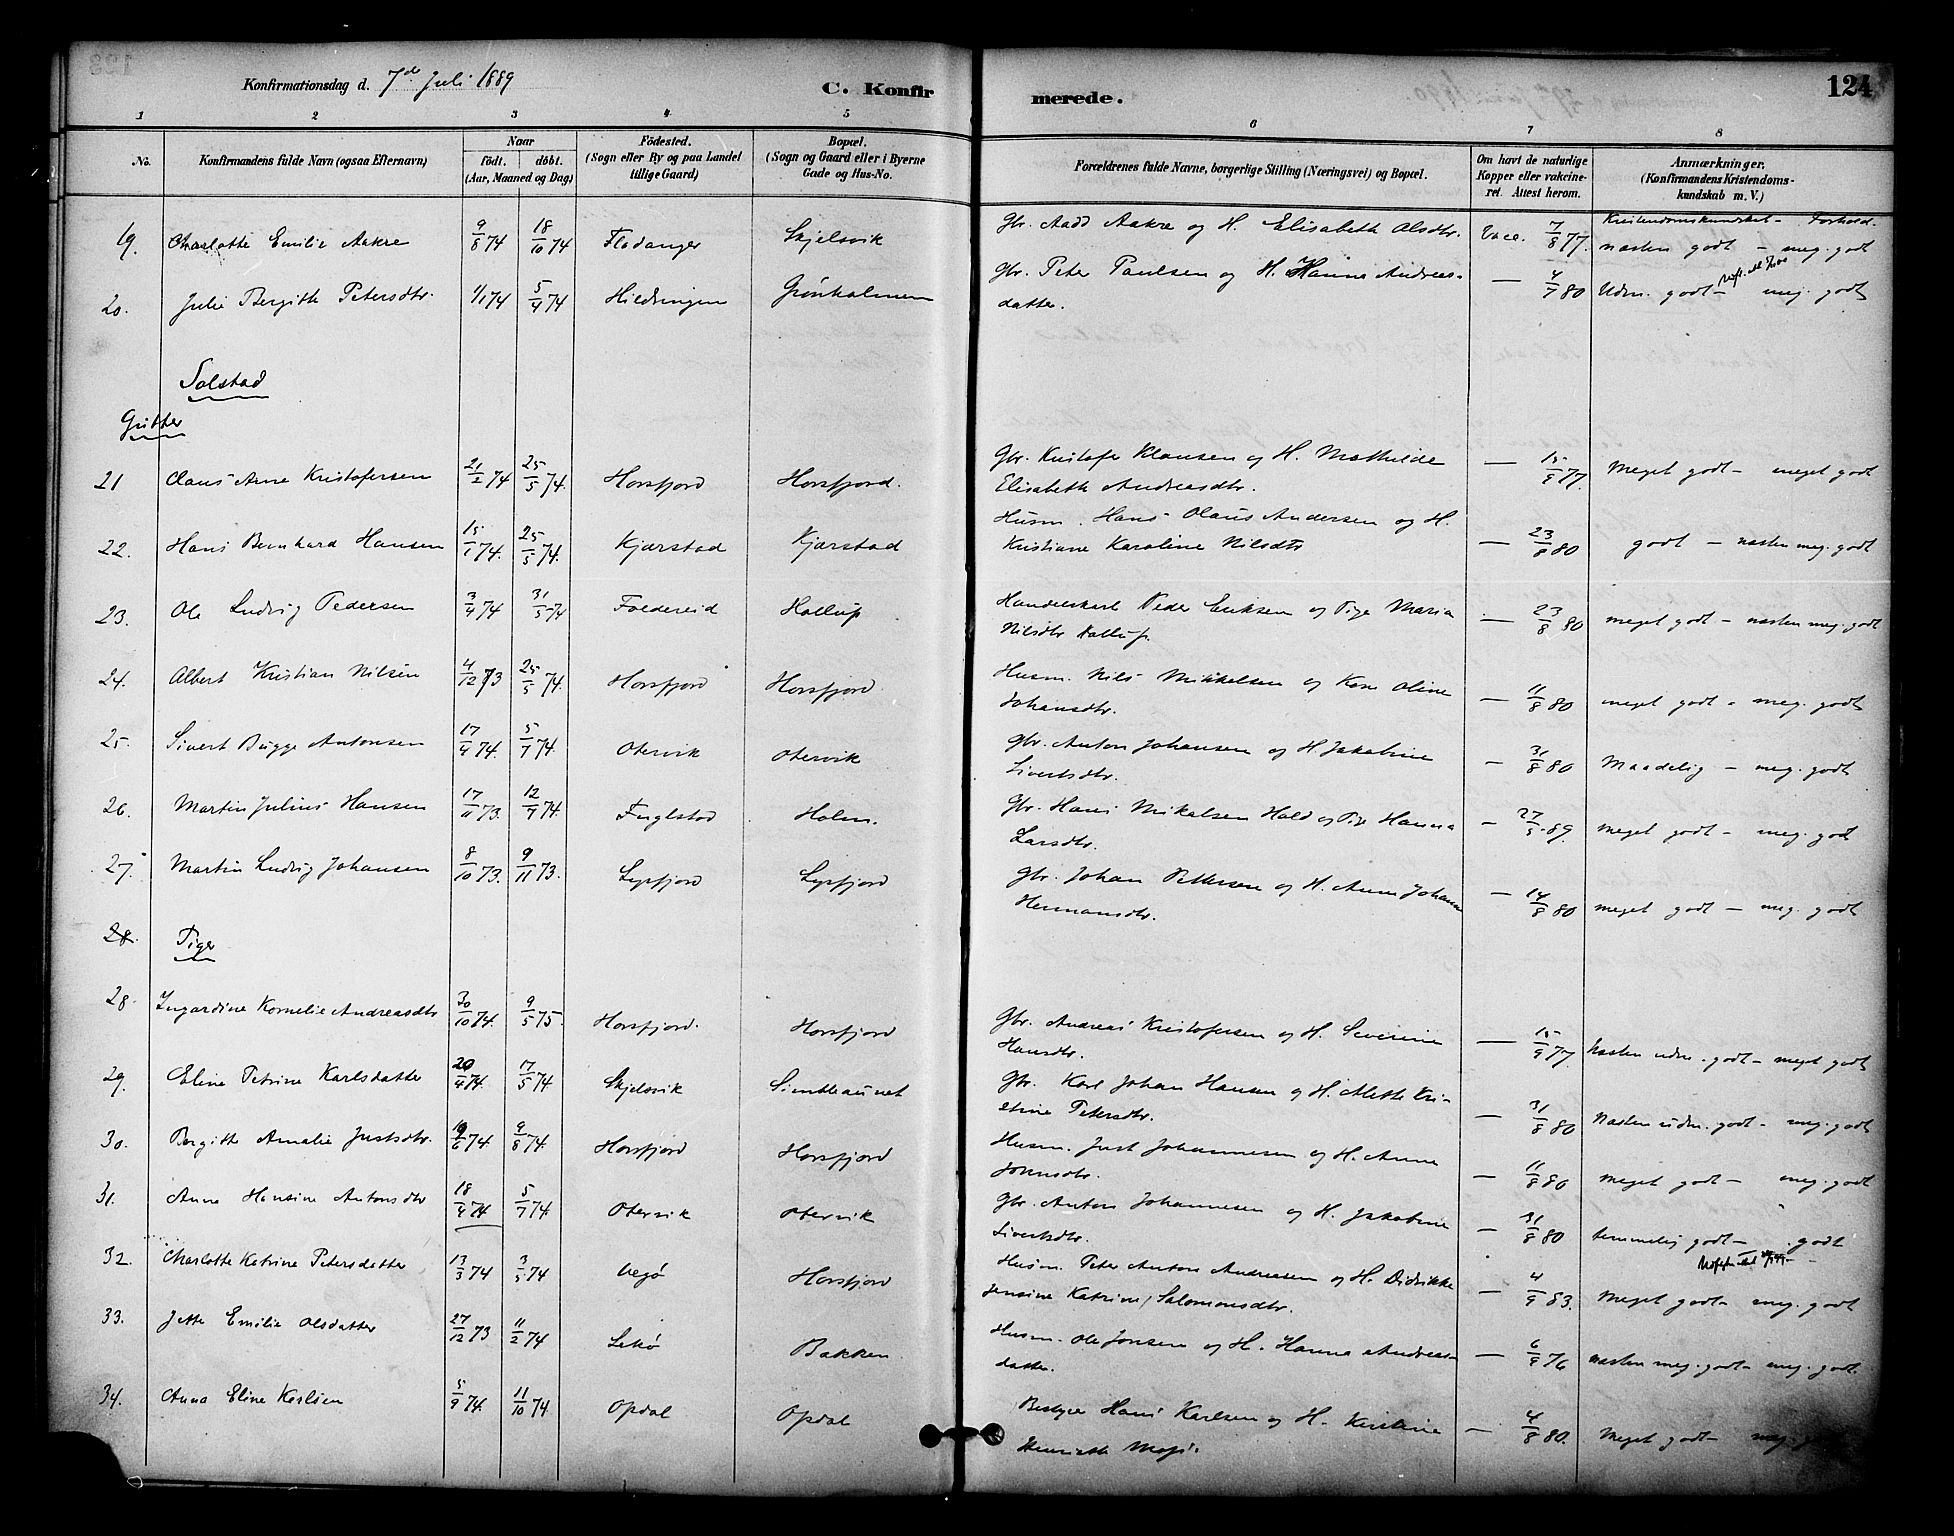 Konfirmationsdag d. 7de Juli 1889
C. Konfirmerede.
124
1 2 3 4 5 6 7 8
No.
Konfirmandens fulde Navn (ogsaa Efternavn)
Naar
födt. döbt.
(Aar, Maaned og Dag)
Födested.
(Sogn eller By og paa Landet
tillige Gaard)
Bopæl.
(Sogn og Gaard eller i Byerne
Gade og Hus-No.
Forældrenes fulde Navne, borgerlige Stilling (Næringsvei) og Bopæl.
Om havt de naturlige
Kopper eller vakcine-
ret. Attest herom.
Anmærkninger.
(Konfirmandens Kristendoms-
kundskab m. V.)
Kristendomskundskab - Forhold.
19. Charlotte Emilie Aakre 9/8 74 18/10 74 Fladanger Skjelsvik Gbr. Aadd Aakre og H. Elisabeth Olsdtr. Vacc. 7/8 77. næsten godt - meg. godt
20. Julie Bergitte Petersdtr. 1/1 74 5/4 74 Hildringen Grönholmen Gbr. Peter Paulsen og H. Hanna Andreas-
datter. — 4/9 80 Udm. godt - meg. godt
Solstad
Gutter
21 Claus Arne Kristofersen 21/2 74 25/5 74. Horsfjord Horsfjord. Gbr. Kristofer Klausen og H. Mathilde
Elisabeth Andreasdtr. — 15/9 77. Meget godt - meget godt
22. Hans Bernhard Hansen 15/1 74. 25/5 74. Kjærstad Kjærstad Husm. Hans Olaus Andersen og H.
Kristiane Karoline Nilsdtr — 23/8 80 godt - næsten meg. godt
23. Ole Ludvig Pedersen 3/4 74 31/5 74 Foldereid Kollup Handelskarl Peder Eriksen og Pige Maria
Nilsdtr Kollup. — 23/8 80 meget godt - næsten meg. godt
24. Albert Kristian Nilsen 4/12 73 25/5 74. Horsfjord Horsfjord. Husm. Nils Mikkelsen og Kone Oline
Johansdtr. — 11/8 80 meget godt - meg. godt
25. Sivert Bugge Antonsen 17/4 74. 5/7 74. Otervik Otervik Gbr. Anton Johansen og H. Jakobine
Sivertsdtr. — 31/8 80 Maadelig - meg. godt
26. Martin Julius Hansen 17/11 73. 12/7 74. Fuglstad Holm. Gbr. Hans Mikalsen Hald og Pige Hanna
Larsdtr. — 27/5 89. meget godt - meg. godt
27. Martin Ludvig Johansen 8/10 73. 9/11 73. Lysfjord Lysfjord Gbr. Johan Pettersen og H. Anne Johanna
Hermansdtr. — 14/8 80 meget godt - meg. godt
28. Piger
28. Ingardine Kornelie Andreasdtr 30/10 74. 9/5 75. Horsfjord. Horsfjord Gbr. Andreas Kristofersen og H. Severine
Hansdtr. — 15/9 77. næsten udm. godt - meget godt
29. Eline Petrine Karlsdatter 20/4 74. 17/5 74. Skjelsvik Simbleaunet Gbr. Karl Johan Hansen og H. Mette Kri-
stine Petersdtr. — 31/8 80 Næsten udm. godt - meg. godt
30. Bergitte Amalie Justsdtr. 19/6 74 9/8 74. Horsfjord Horsfjord Husm. Just Johannesen og H. Anne
Jonsdtr. — 11/8 80 meget godt - meg. godt
31. Anna Hansine Antonsdtr 18/4 74 5/7 74. Otervik Otervik Gbr. Anton Johannesen og H. Jakobine
Sivertsdtr. — 31/8 80 temmelig godt - godt
32. Charlotte Katrine Petersdatter 13/3 74 3/5 74 Vegø Horsfjord Husm. Peter Anton Andreasen og H. Didrikke
Jensine Katrine Salomonsdtr. — 4/9 83. Meget godt - meg. godt
33. Jette Emilie Olsdatter 27/12 73 11/2 74 Lekø Bakken Husm. Ole Jonsen og H. Hanna Andreas-
datter. — 6/9 76 næsten meg. godt - meg. godt.
34. Anna Eline Karlsen 5/9 74. 11/10 74 Opdal Opdal Bestyrer Hans Karlsen og H. Kristine
Henriette — 4/8 80. Meget godt - meg.